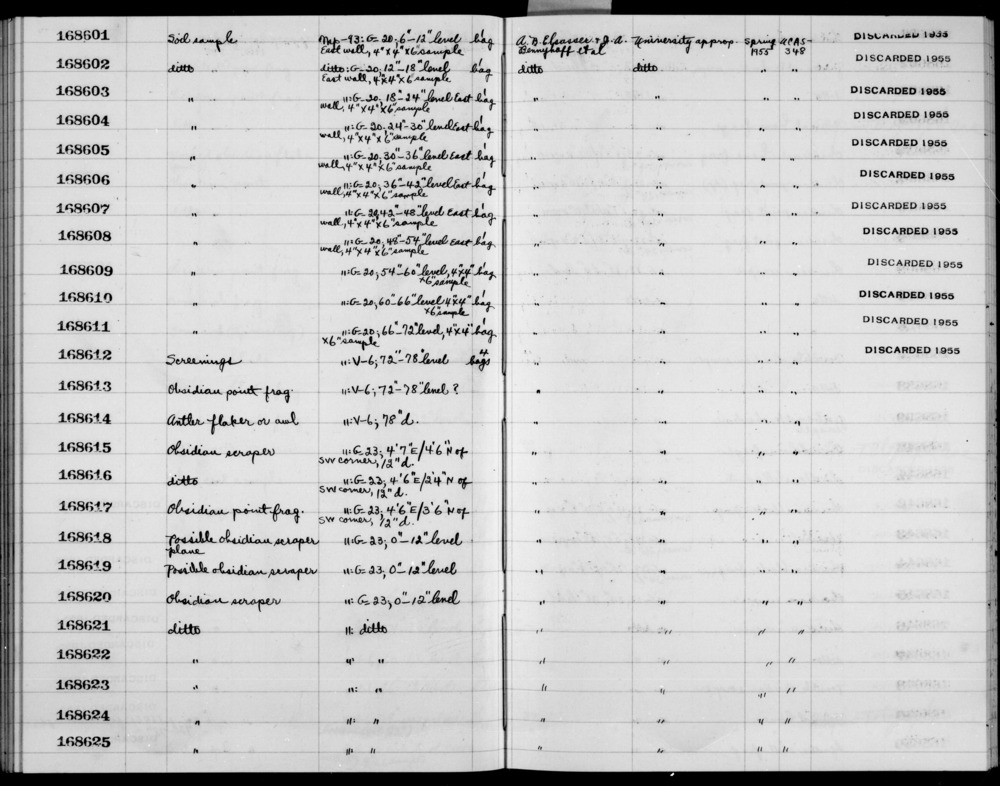 168601 Soil sample Nap-93: G-20; 6"-12" level 1 bag A. B. Elsasser & J. A. University approp. Spring UCAS- DISCARDED 1955
East wall, 4" x 4" x 6" sample Bennyhoff et al 1955 348
168602 ditto ditto: G-20; 12"-18" level 1 bag ditto ditto " " DISCARDED 1955
East wall, 4"x4"x6" sample
168603 " ": G-20, 18"-24" level East 1 bag " " " " DISCARDED 1955
wall, 4"x4"x6" sample
168604 " ": G-20, 24"-30" level East 1 bag " " " " DISCARDED 1955
wall, 4"x4"x6" sample
168605 " ": G-20, 30"-36" level East 1 bag " " " " DISCARDED 1955
wall, 4"x4"x6" sample
168606 " ": G-20; 36"-42" level East 1 bag " " " " DISCARDED 1955
wall, 4"x4"x6" sample
168607 " ": G-20, 42"-48" level East 1 bag " " " " DISCARDED 1955
wall, 4"x4"x6" sample
168608 " ": G-20, 48"-54" level East 1 bag " " " " DISCARDED 1955
wall, 4"x4"x6" sample
168609 " ": G-20; 54"-60" level, 4"x4" 1 bag " " " " DISCARDED 1955
x6" sample
168610 " ": G-20, 60"-66" level 4"x4" 1 bag " " " " DISCARDED 1955
x6" sample
168611 " ": G-20; 66"-72" level, 4"x4" 1 bag " " " " DISCARDED 1955
x6" sample
168612 Screenings ": V-6; 72"-78" level 4 bags " " " " DISCARDED 1955
168613 Obsidian point frag. ": V-6; 72"-78" level? " " " "
168614 Antler flaker or awl ": V-6; 78"d. " " " "
168615 Obsidian scraper ": G-23; 4'7"E/4'6"N of " " " "
SW corner, 12"d.
168616 ditto ": G-23; 4'6"E/2'4"N of " " " "
SW corner, 12"d.
168617 Obsidian point frag. ": G-23; 4'6"E/3'6"N of " " " "
SW corner, 12"d.
168618 Possible obsidian scraper ": G-23; 0"-12" level " " " "
plane
168619 Possible obsidian scraper ": G-23; 0"-12" level " " " "
168620 Obsidian scraper ": G-23; 0"-12" level " " " "
168621 ditto ": ditto " " " "
168622 " " " " " " "
168623 " ": " " " " "
168624 " ": " " " " "
168625 " " " " " " "